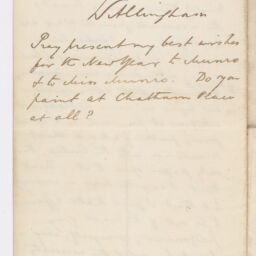 W Allingham
Pray present my best wishes
for the New Year to Munro
& to Miss Munro. Do you
paint at Chatham Place
at all?